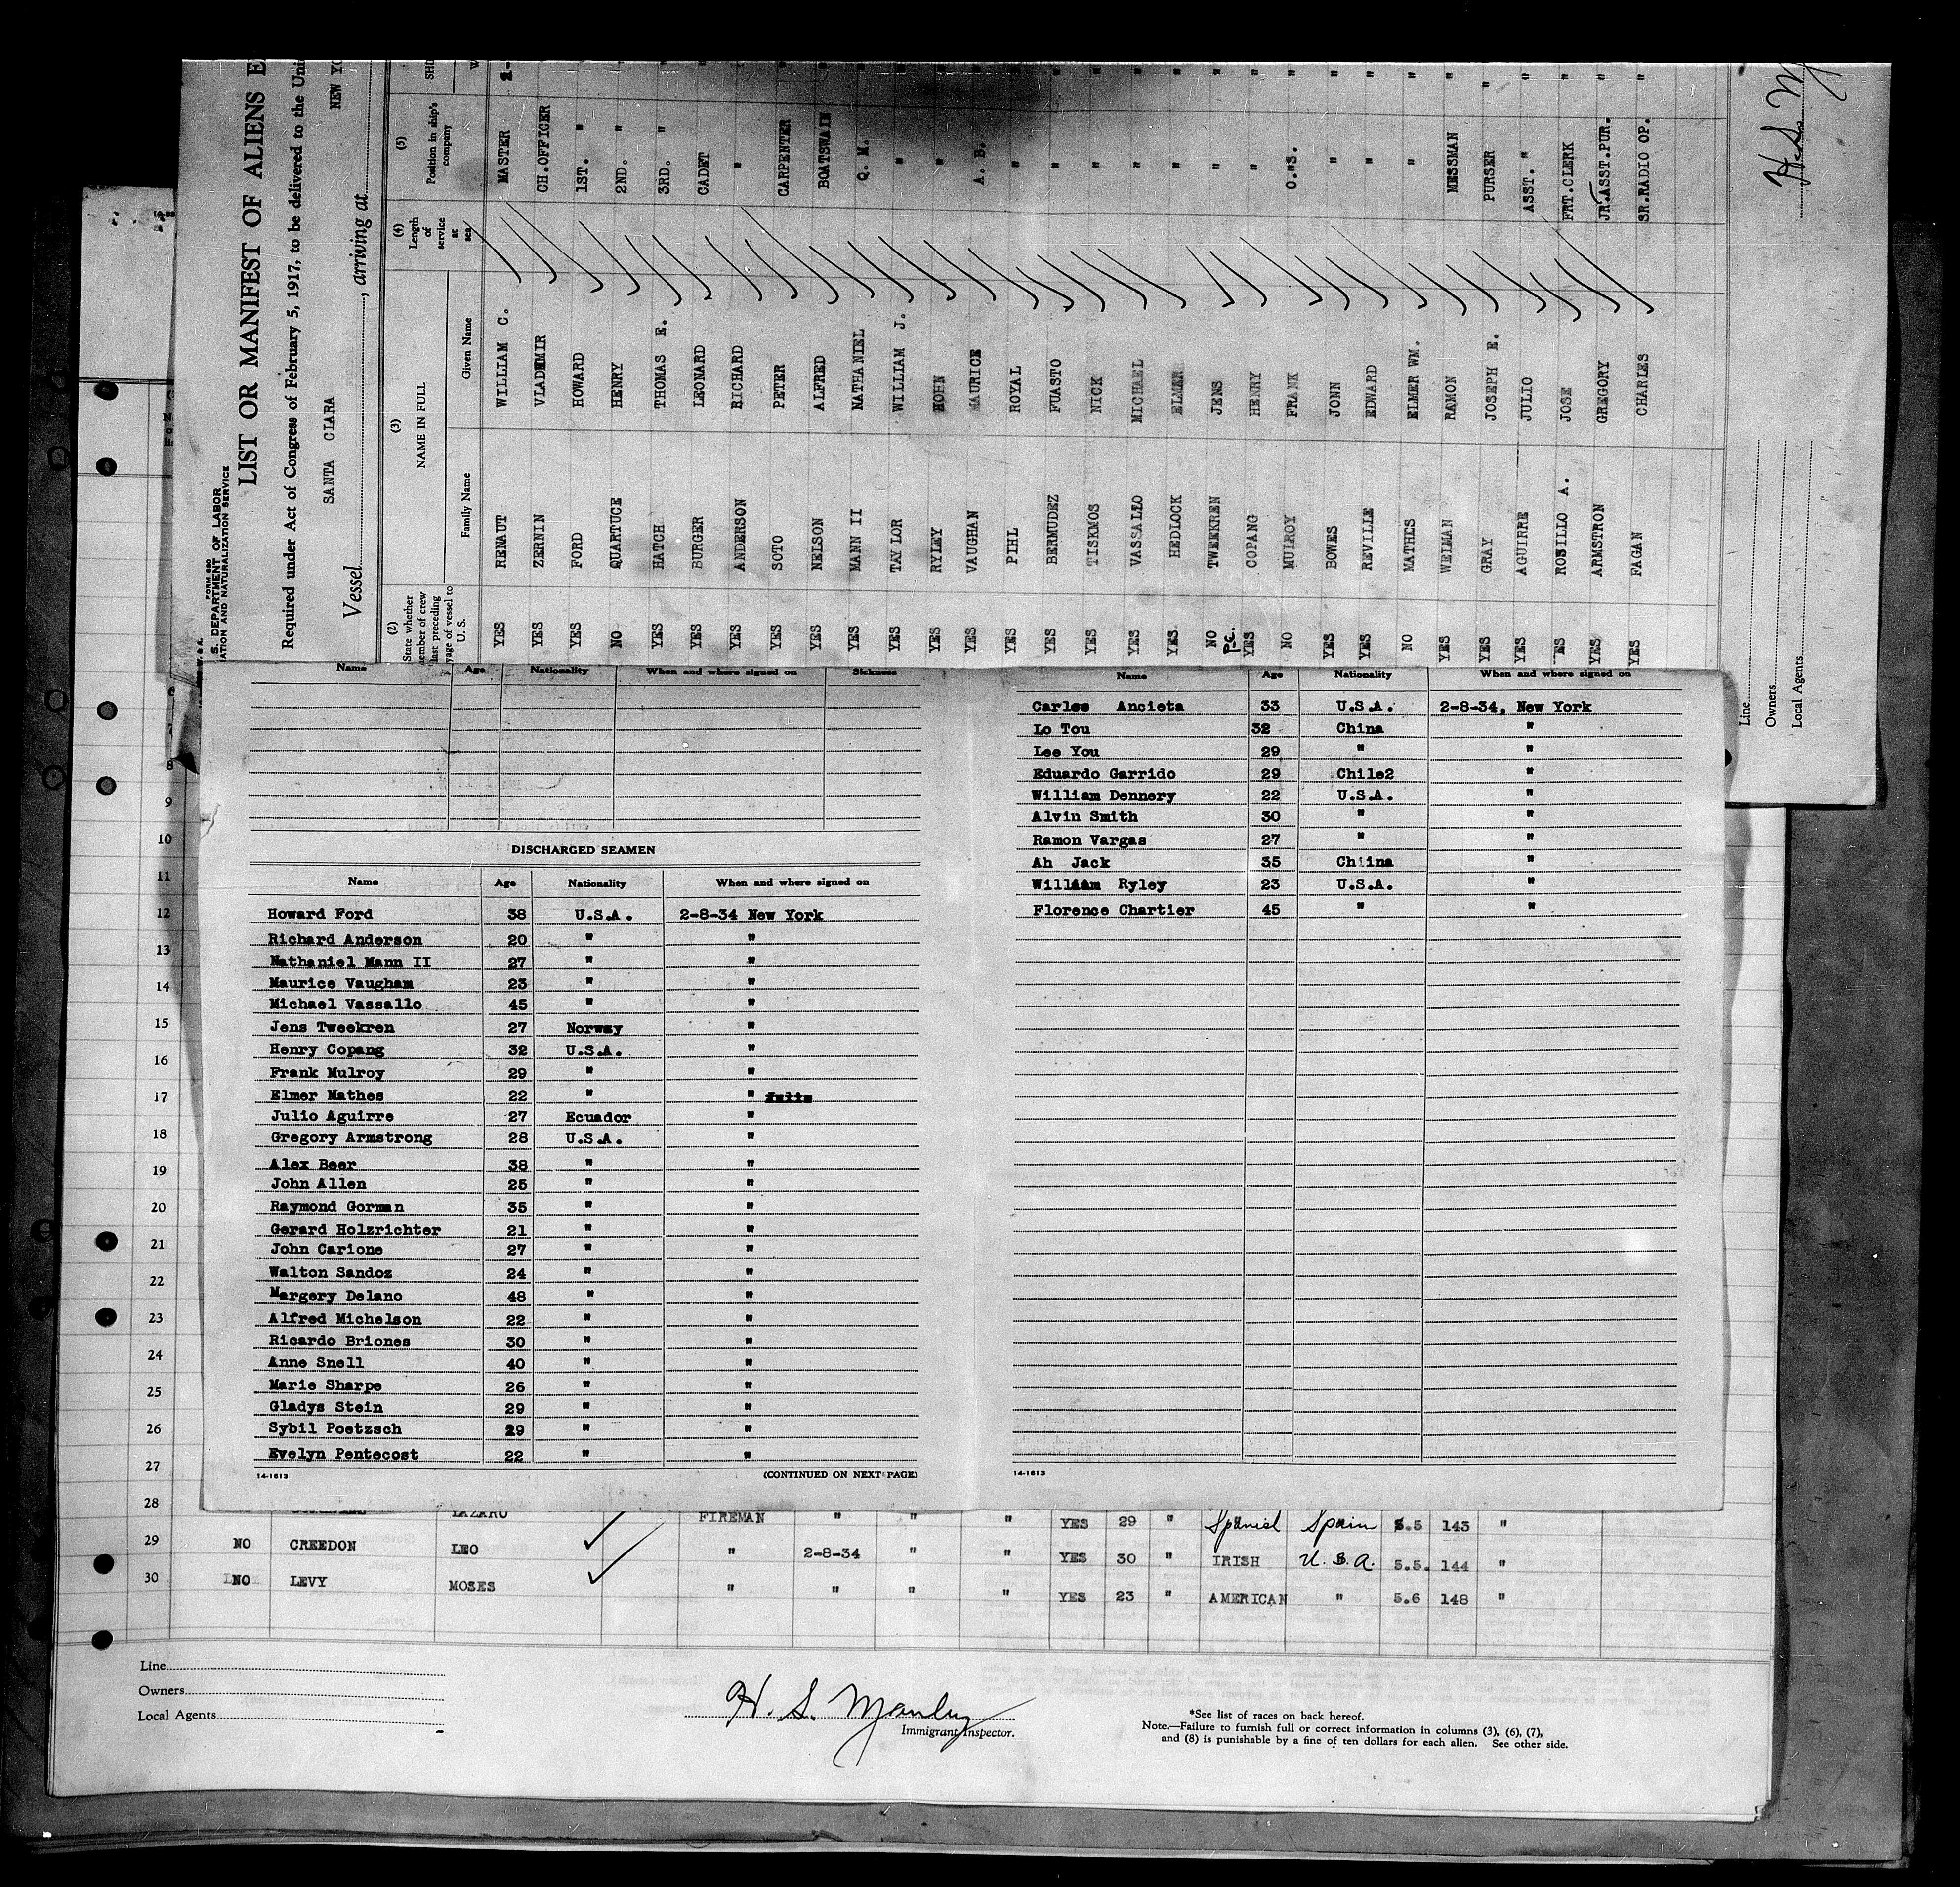 FORM 680
S. DEPARTMENT OF LABOR
ATION AND NATURALIZATION SERVICE
LIST OR MANIFEST OF ALIENS E
Required under Act of Congress of February 5, 1917, to be delivered to the Uni
Vessel SANTA CLARA, arriving at NEW YO
(2) State whether member of crew last preceding voyage of vessel to U. S. (3) NAME IN FULL Family Name Given Name (4) Length of service at sea (5) Position in ship's company
YES RENAUT WILLIAM C. MASTER
YES ZERNIN VLADEMIR CH.OFFICER "
YES FORD HOWARD 1ST. " "
NO QUARTUCE HENRY 2ND. " "
YES HATCH THOMAS E. 3RD. " "
YES BURGER LEONARD CADET "
YES ANDERSON RICHARD " "
YES SOTO PETER CARPENTER
YES NELSON ALFRED BOATSWAIN
YES MANN II NATHANIEL Q. M.
YES TAYLOR WILLIAM J. "
YES RYLEY JOHN "
YES VAUGHAN MAURICE A. B.
YES PIHL ROYAL " "
YES BERMUDEZ FUASTO " "
YES TISKMOS NICK " "
YES VASSALLO MICHAEL " "
YES HEDLOCK ELMER " "
NO TWEEKREN JENS " "
P.C. YES COPANG HENRY " "
NO MULROY FRANK O."S. "
YES BOWES JONN " "
YES REVILLE EDWARD " "
NO MATHES ELMER WM. " "
YES WEIMAN RAMON MESSMAN "
YES GRAY JOSEPH E. PURSER "
YES AGUIRRE JULIO ASST. " "
YES ROSILLO A. JOSE FRT.CLERK "
YES ARMSTRON GREGORY JR.ASST.PUR. "
YES FAGAN CHARLES SR.RADIO OP. "
Line
Owners
Local Agents
H. S. M
Name Age Nationality When and where signed on Sickness
DISCHARGED SEAMEN
Name Age Nationality When and where signed on
Howard Ford 38 U.S.A. 2-8-34 New York
Richard Anderson 20 " "
Nathaniel Mann II 27 " "
Maurice Vaugham 23 " "
Michael Vassallo 45 " "
Jens Tweekren 27 Norway "
Henry Copang 32 U.S.A. "
Frank Mulroy 29 " "
Elmer Mathes 22 " "
Julio Aguirre 27 Ecuador "
Gregory Armstrong 28 U.S.A. "
Alex Beer 38 " "
John Allen 25 " "
Raymond Gorman 35 " "
Gerard Holzrichter 21 " "
John Carione 27 " "
Walton Sandoz 24 " "
Margery Delano 48 " "
Alfred Michelson 22 " "
Ricardo Briones 30 " "
Anne Snell 40 " "
Marie Sharpe 26 " "
Gladys Stein 29 " "
Sybil Poetzsch 29 " "
Evelyn Pentecost 22 " "
14-1613 (CONTINUED ON NEXT PAGE)
Name Age Nationality When and where signed on
Carlos Ancieta 33 U.S.A. 2-8-34, New York
Lo Tou 32 China "
Lee You 29 " "
Eduardo Garrido 29 Chile2 "
William Dennery 22 U.S.A. "
Alvin Smith 30 " "
Ramon Vargas 27 " "
Ah Jack 35 Chiina "
William Ryley 23 U.S.A. "
Florence Chartier 45 " "
14-1613
8
9
10
11
12
13
14
15
16
17
18
19
20
21
22
23
24
25
26
27
28 LAZARO FIREMAN " " " YES 29 " Spanish Spain 5.5 143 "
29 NO CREEDON LEO " 2-8-34 " " YES 30 " IRISH U.S.A. 5.5. 144 "
30 NO LEVY MOSES " " " " YES 23 " AMERICAN " 5.6 148 "
Line
Owners
Local Agents
H. S. Manley
Immigrant Inspector.
*See list of races on back hereof.
Note.—Failure to furnish full or correct information in columns (3), (6), (7),
and (8) is punishable by a fine of ten dollars for each alien. See other side.